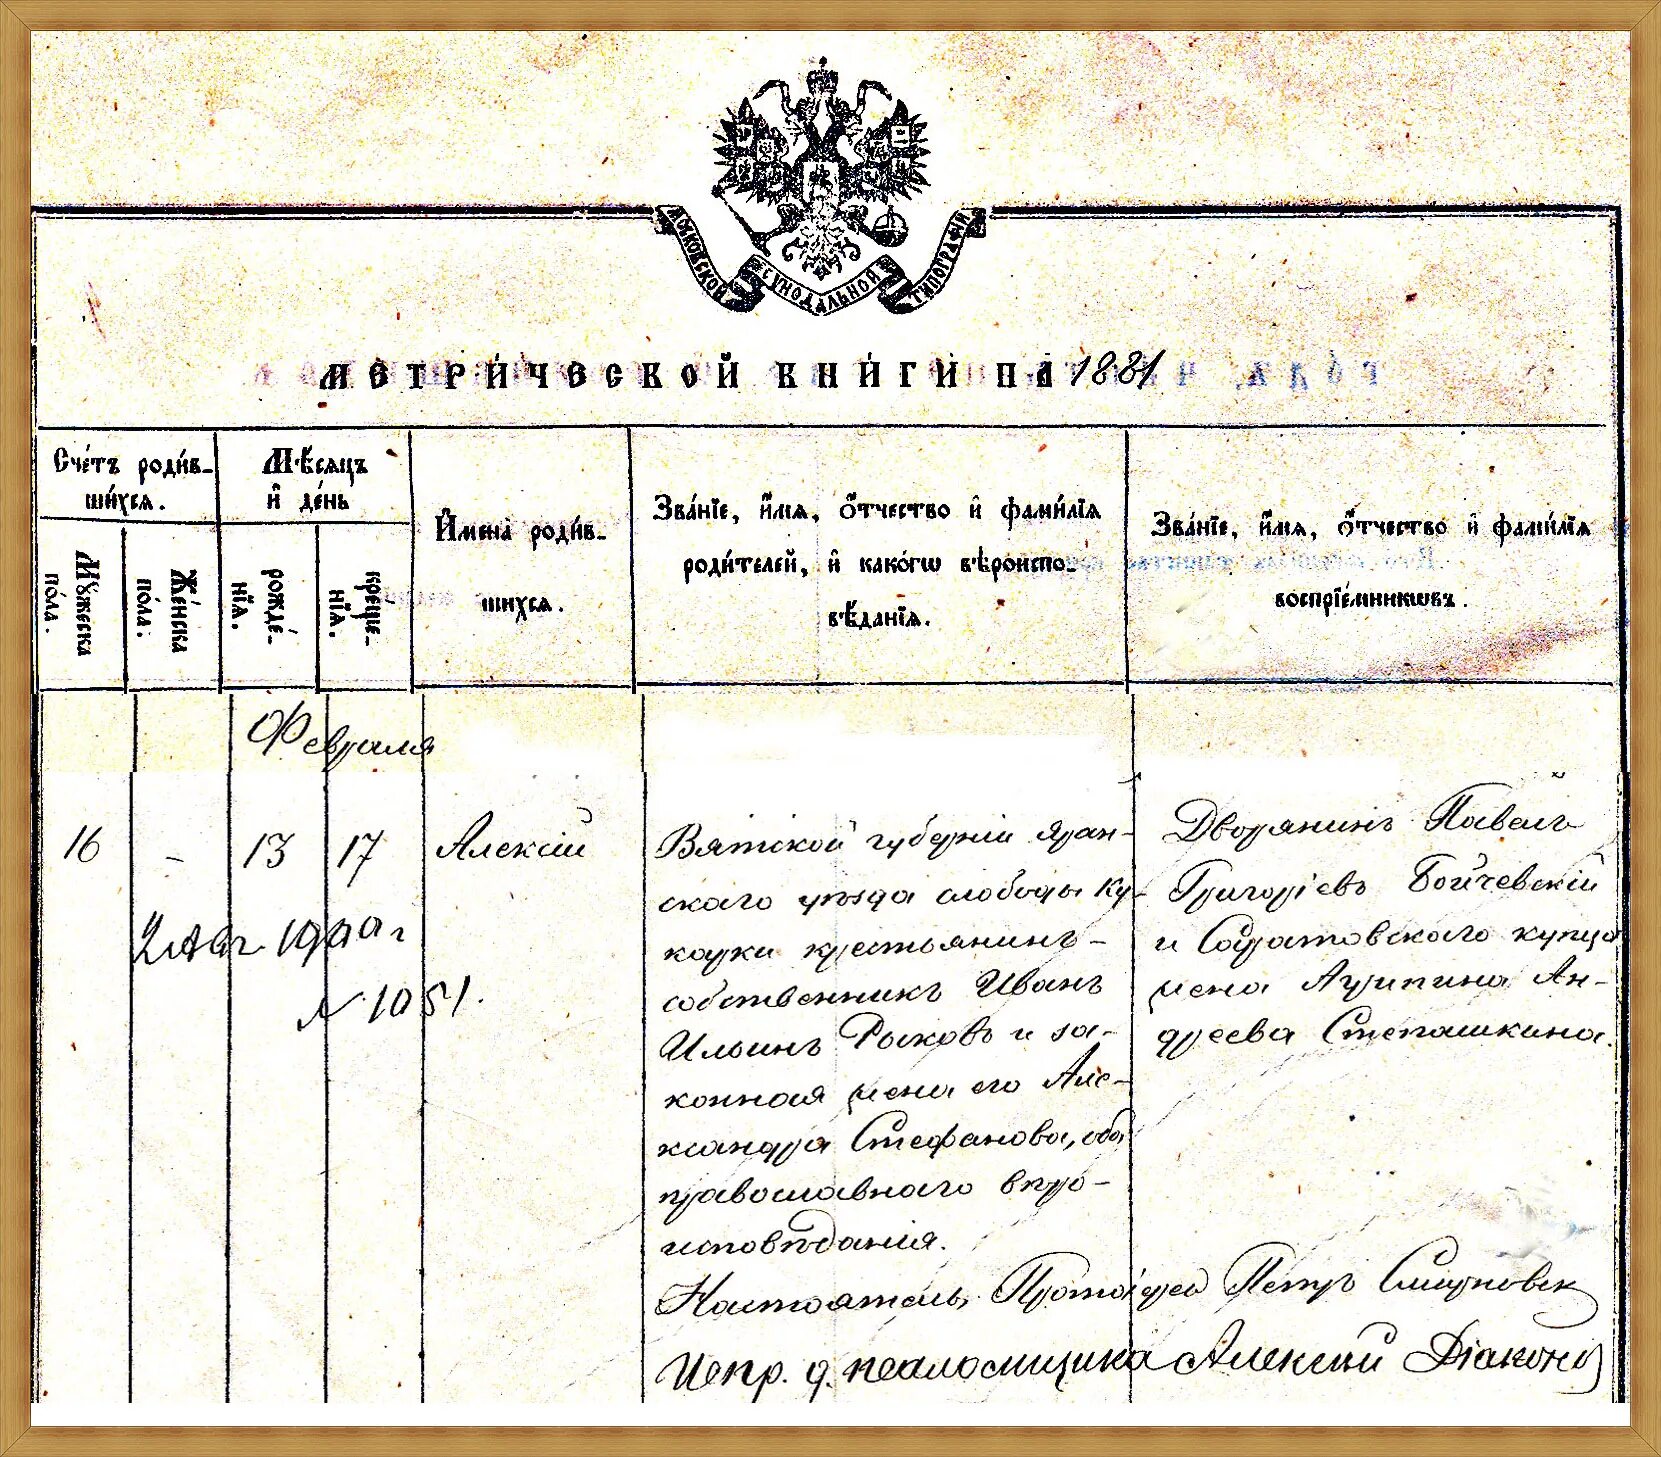 МОСКОВСКОЙ СѴНОДАЛЬНОЙ ТИПОГРАФІИ
МЕТРИ́ЧЕСКОЙ КНИ́ГИ НА 1881 го́да,
Сче́тъ роди́в-
ши́хся.
Мѣ́сяцъ
и҆ де́нь
Мꙋ́жеска
по́ла.
Же́нска
по́ла.
рожде́-
нїѧ.
креще́-
нїѧ.
И҆мена̀ роди́в-
шихся.
Зва́нїе, и҆́мя, о҆́тчество и҆ фами́лїя
роди́телей, и҆ како́гѡ вѣроиспо-
вѣ́данїя.
Зва́нїе, и҆́мя, о҆́тчество и҆ фами́лїя
воспрїе́мникѡвъ.
Февраля
16 - 13 17 Алексій
Вятской губерніи Яран-
скаго уѣзда слободы Ку-
карки крестьянинъ-
собственникъ Иванъ
Ильинъ Рыковъ и за-
конная жена его Але-
ксандра Стефанова, оба
православнаго вѣро-
исповѣданія.
Дворянинъ Павелъ
Григоріевъ Бойчевскій
и Саратовскаго купца
жена Агрипина Ан-
дреева Степашкина.
№ 1051.
Настоятель, Протоіерей Петръ Смирновск
Испр. д. псаломщика Алексій Діаконов